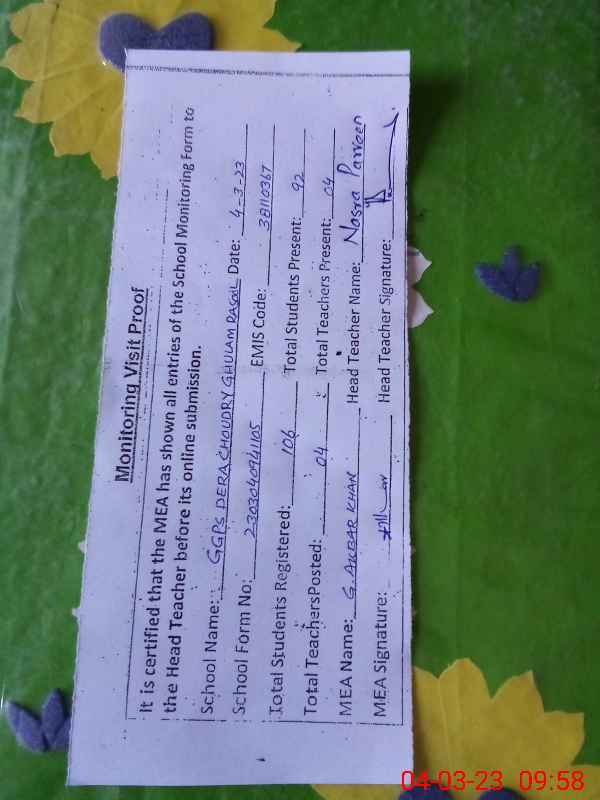 Monitoring Visit Proof
It is certified that the MEA has shown all entries of the School Monitoring Form to
the Head Teacher before its online submission.
School Name: GGPS DERA CHOUDRY GHULAM RASOOL Date: 4-3-23
School Form No: 2303040941105 EMIS Code: 38110367
Total Students Registered: 106 Total Students Present: 92
Total TeachersPosted: 04 Total Teachers Present: 04
MEA Name: G. AKBAR KHAN Head Teacher Name: Nasra Parveen
MEA Signature: Head Teacher Signature:
04-03-23 09:58